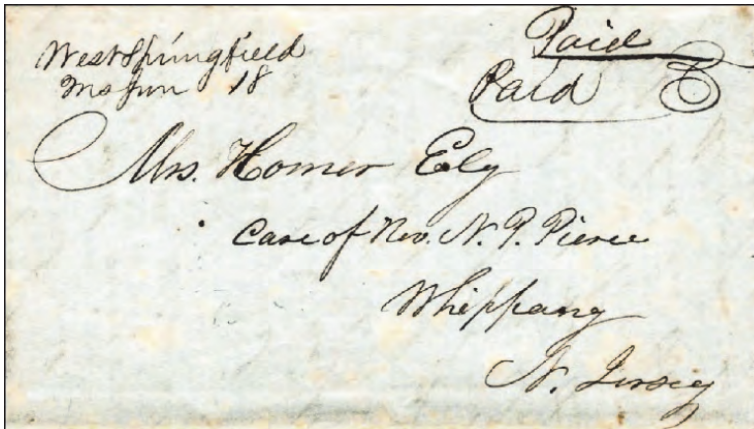 West Springfield
Ms Jun 18
Paid
Paid
Mrs. Homer Ely
Care of Rev. N. P. Pierce
Whippany
N. Jersey